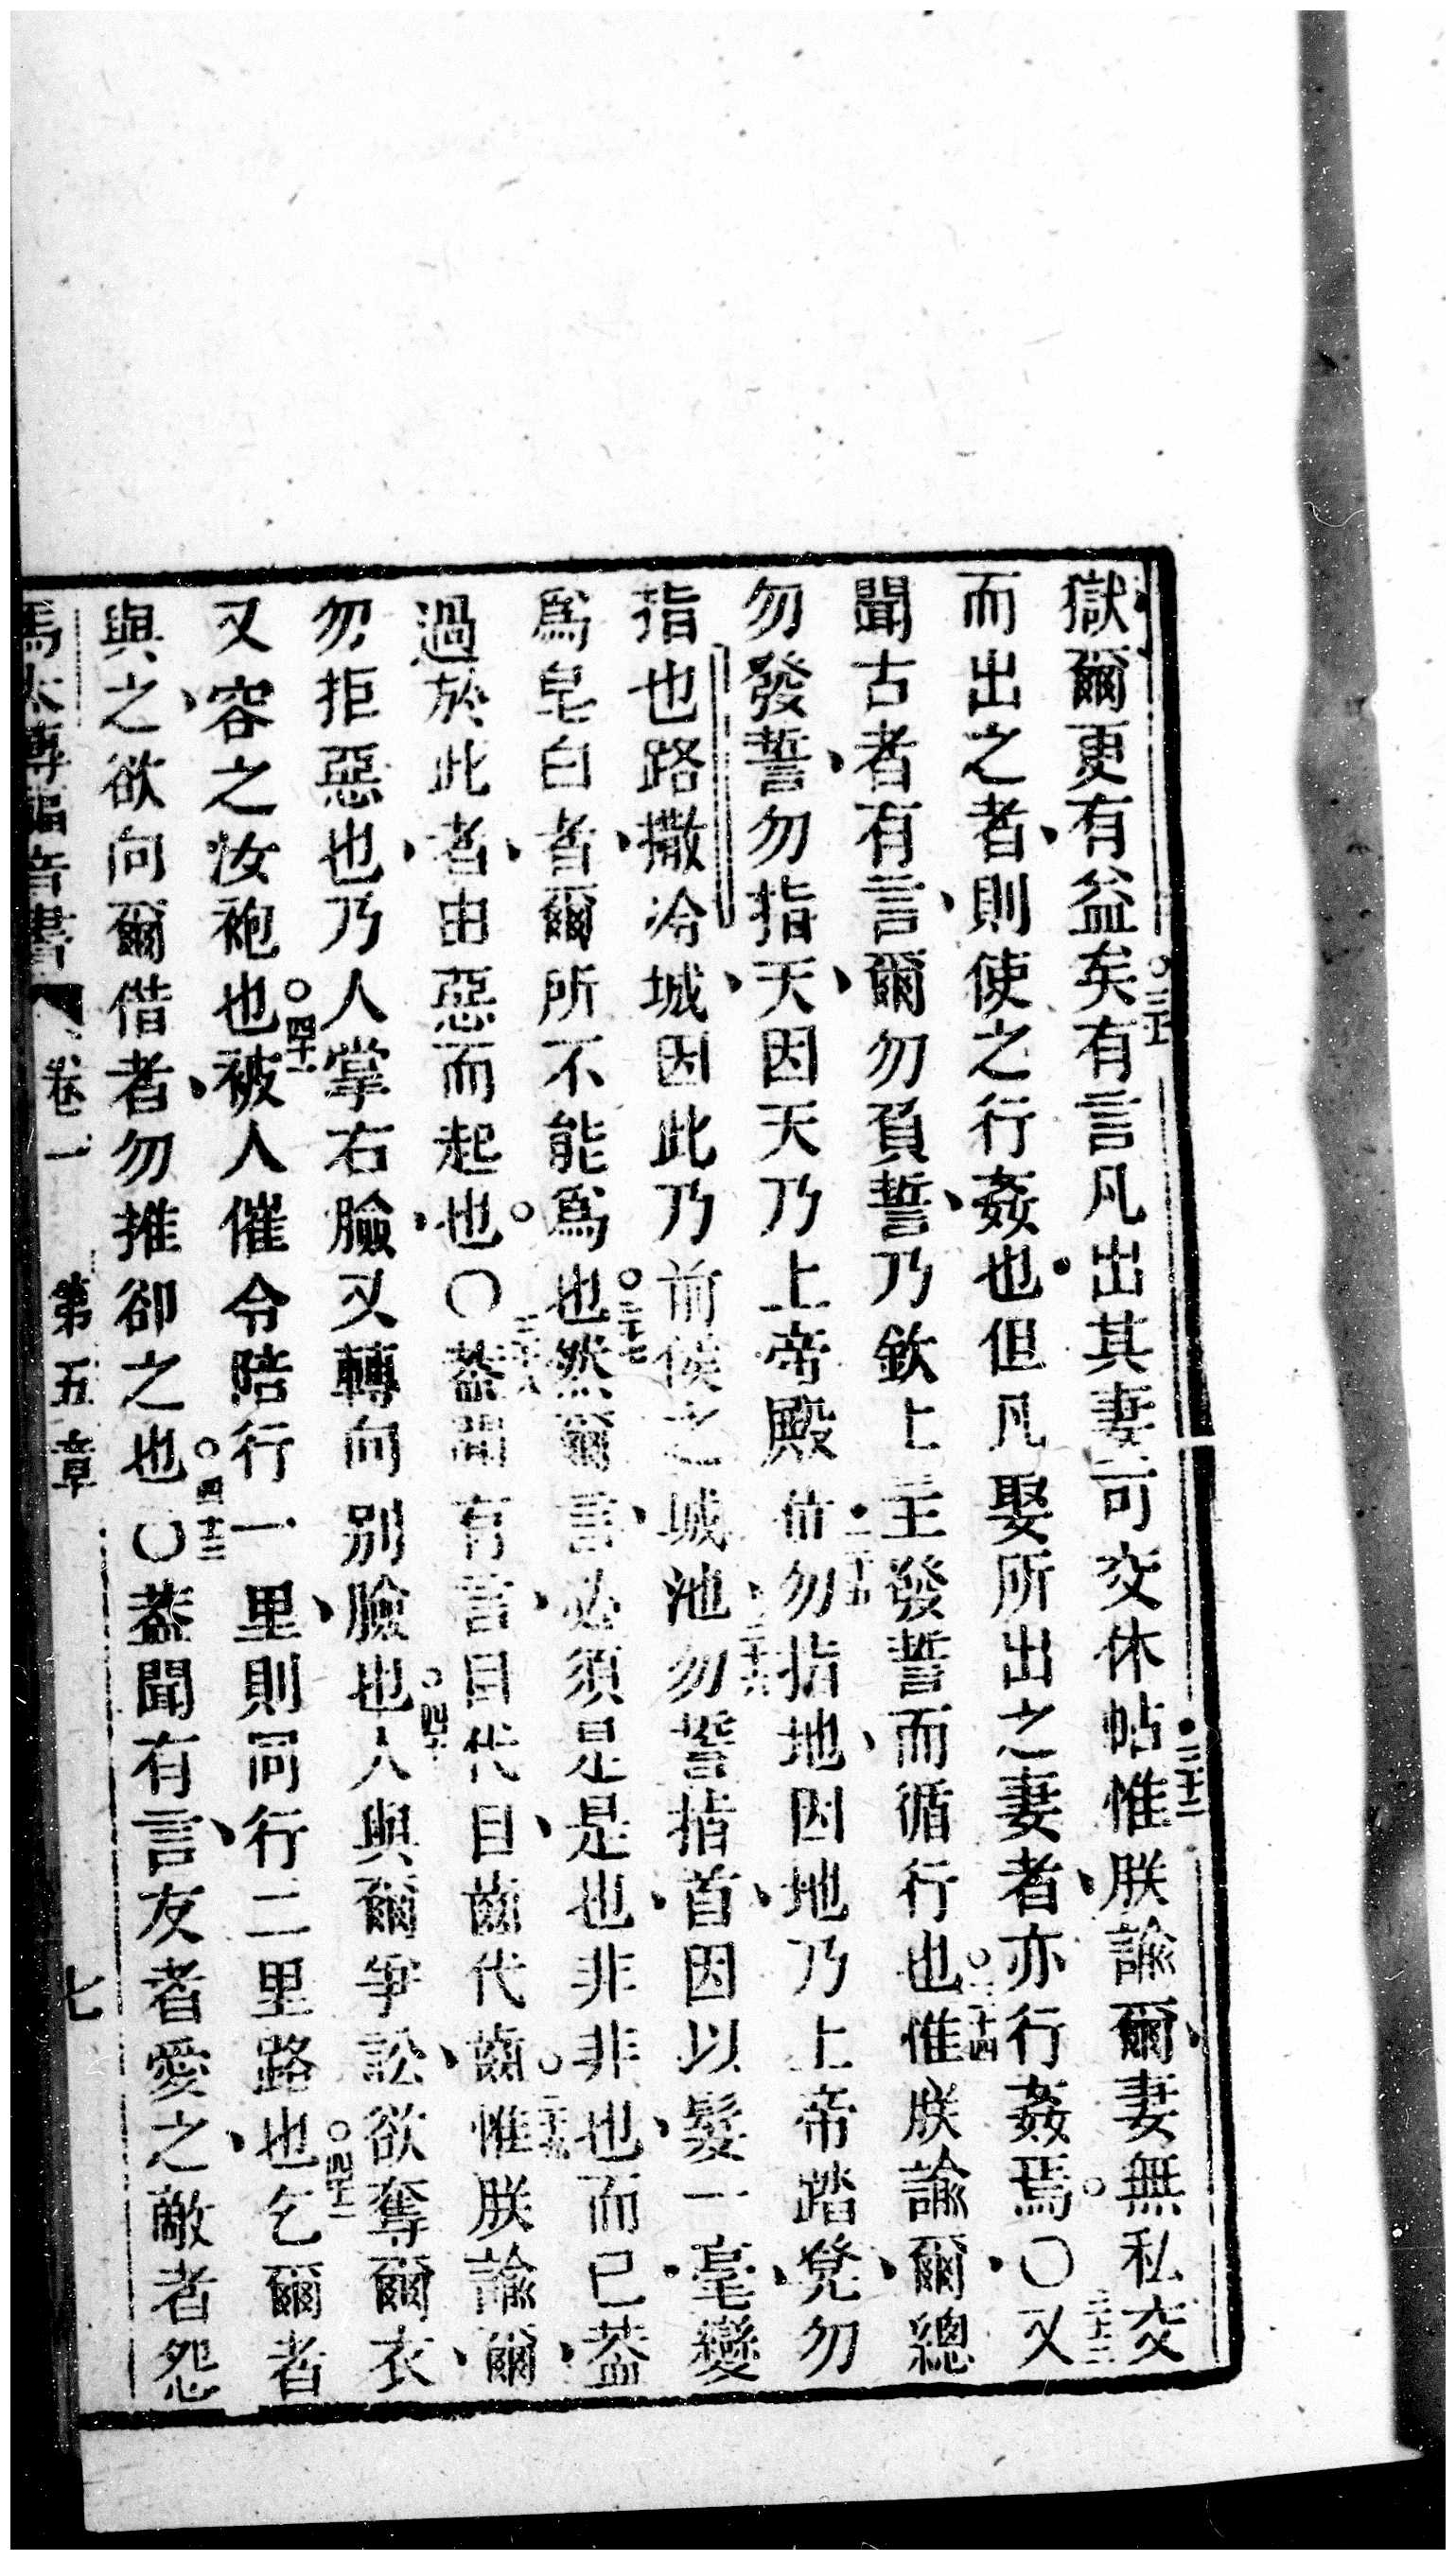 獄爾更有益矣○三十一有言凡出其妻可交休帖●三十二惟朕諭爾妻無私交
而出之者則使之行姦也但凡娶所出之妻者亦行姦焉○三十三又
聞古者有言爾勿負誓乃欽上主發誓而循行也○三十四惟朕諭爾總
勿發誓勿指天因天乃上帝殿也三十五勿指地因地乃上帝踏凳勿
指也路撒冷城因此乃前侯之城池三十六勿誓指首因以髮一毫變
爲皂白者爾所不能爲也○三十七然爾言必須是是也非非也而已葢
過於此者由惡而起也○三十八葢聞有言目代目齒代齒○三十九惟朕諭爾
勿拒惡也乃人掌右臉又轉向別臉也○四十人與爾爭訟欲奪爾衣
又容之汝袍也○四十一被人催令陪行一里則同行二里路也○四十二乞爾者
與之欲向爾借者勿推卻之也○四十三葢聞有言友者愛之敵者怨
馬太傳福音書 卷一 第五章 七